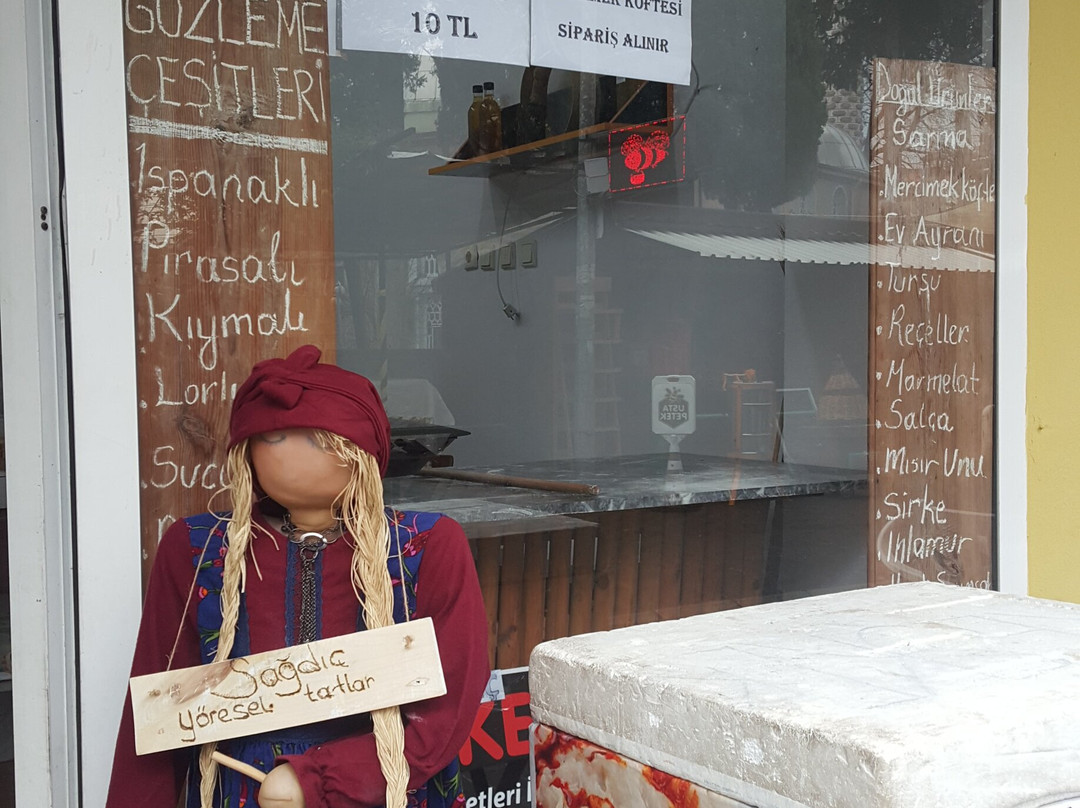 GÖZLEME
ÇEŞİTLERİ
Ispanaklı
Pırasalı
Kıymalı
Lorlu
10 TL
KÖFTESİ
SİPARİŞ ALINIR
USTA
PETEK
Doğal Ürünler
Sarma
Mercimek köfte
Ev Ayranı
Turşu
Reçeller
Marmelat
Salça
Mısır Unu
Sirke
Ihlamur
Sağdıç
yöresel tatlar
etleri